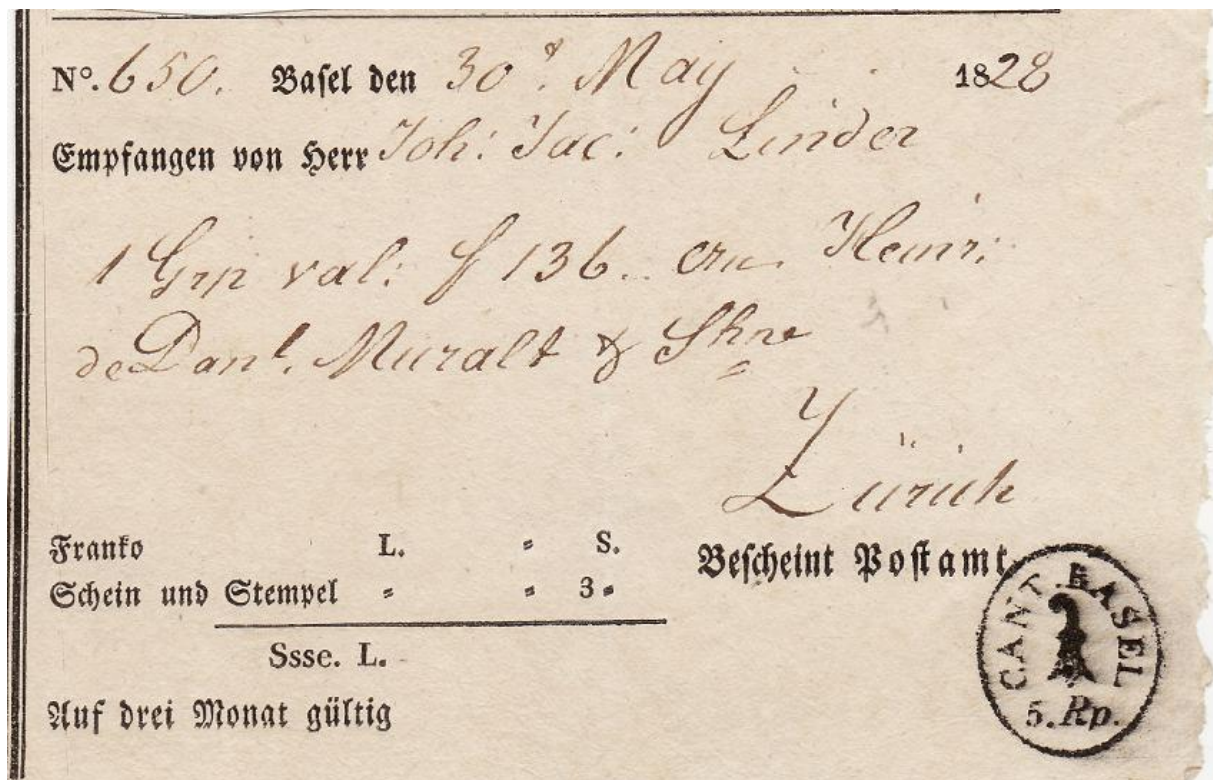 N°. 650. Baſel den 30ᵗ. May 1828
Empfangen von Herr Joh: Jac: Linder
1 Grp val: f 136.. an Heinr:
de Danl. Muralt & Shne
Zürich
Franko L. " S.
Schein und Stempel " " 3 "
Ssse. L.
Auf drei Monat gültig
Beſcheint Poſtamt
CANT. BASEL
5. Rp.